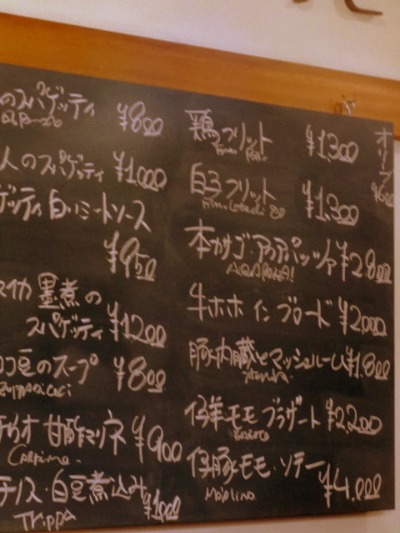 のスパゲッティ ¥800
人のスパゲティ ¥1000
ゲッティ白いミートソース
¥950
イカ墨煮の
スパゲッティ ¥1200
豆のスープ ¥800
甘酢マリネ ¥900
チリス・白豆煮込み ¥1,000
Trippa
鶏フリット ¥1,300
白子フリット ¥1,300
本カサゴ・アクアパッツァ ¥2800
牛ホホ イン ブロード ¥2000
豚内臓とマッシュルーム ¥1,800
仔羊モモ ブラザート ¥2,200
仔豚モモ・ソテー ¥4,000
Maialino
オ
ー
ブ